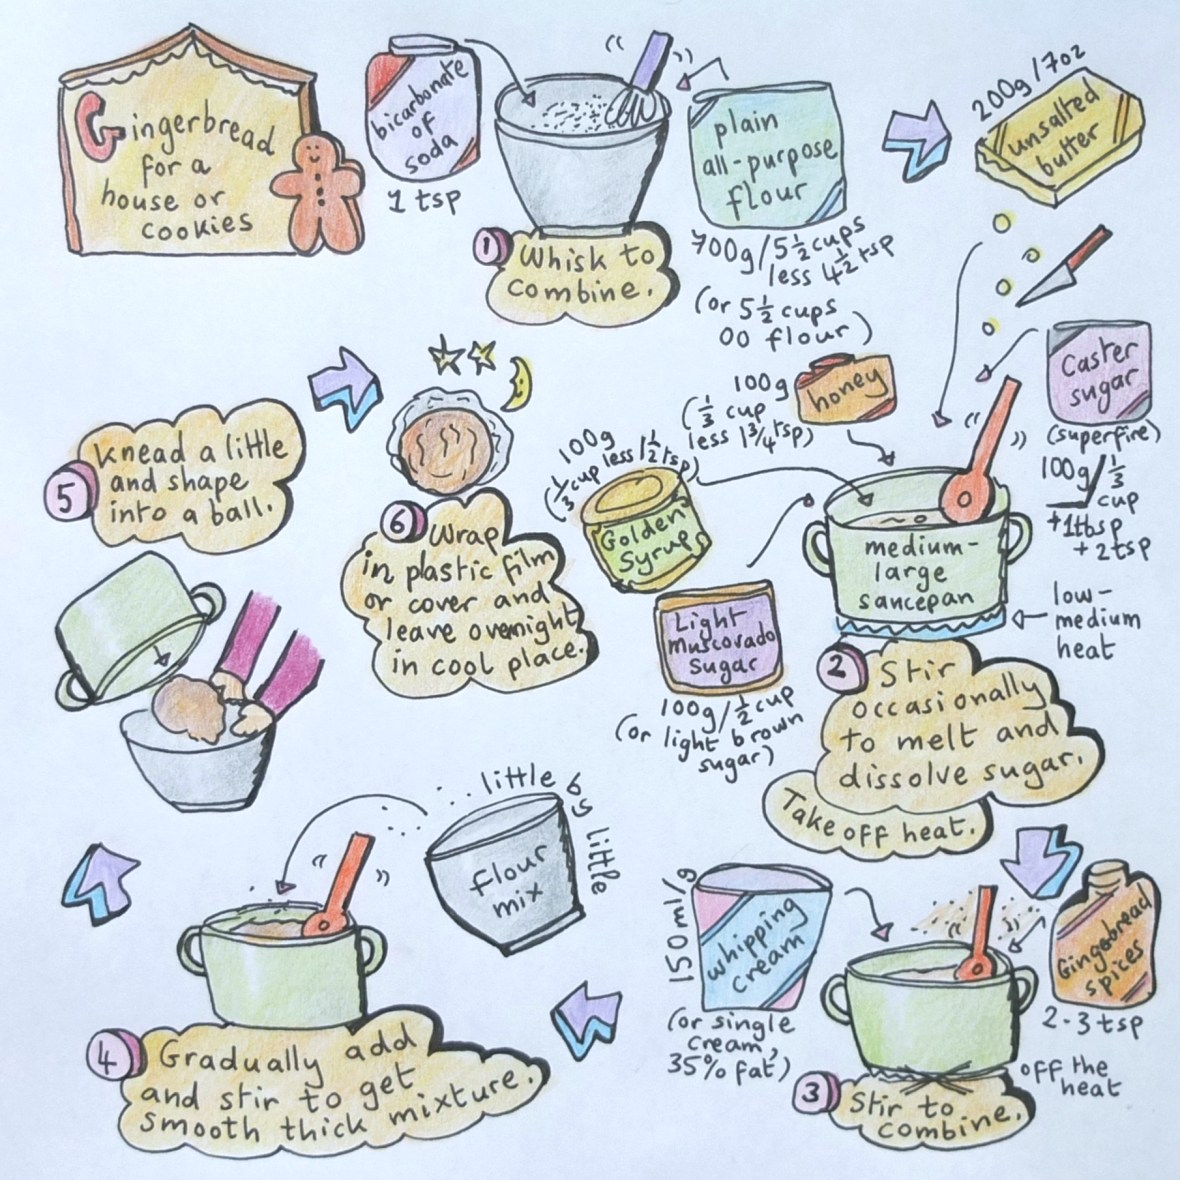 Gingerbread
for a
house or
cookies
bicarbonate
of
soda
1 tsp
plain
all-purpose
flour
700g/5½ cups
less 4½ tsp
(or 5½ cups
00 flour)
1
Whisk to
combine.
200g/7oz
unsalted
butter
Caster
sugar
(superfire)
100g/⅓
cup
+1tbsp
+2tsp
honey
100g
(⅓ cup
less 1¾ tsp)
Golden
Syrup
100g
(⅓ cup less 1½ tsp)
Light
Muscovado
Sugar
100g/½ cup
(or light brown
sugar)
medium-
large
saucepan
low-
medium
heat
2
Stir
occasionally
to melt and
dissolve sugar.
Take off heat.
whipping
cream
150ml/g
(or single
cream,
35% fat)
Gingerbread
spices
2-3 tsp
off the
heat
3
Stir to
combine.
flour
mix
little by little
4
Gradually add
and stir to get
smooth thick mixture.
5
knead a little
and shape
into a ball.
6
Wrap
in plastic film
or cover and
leave overnight
in cool place.